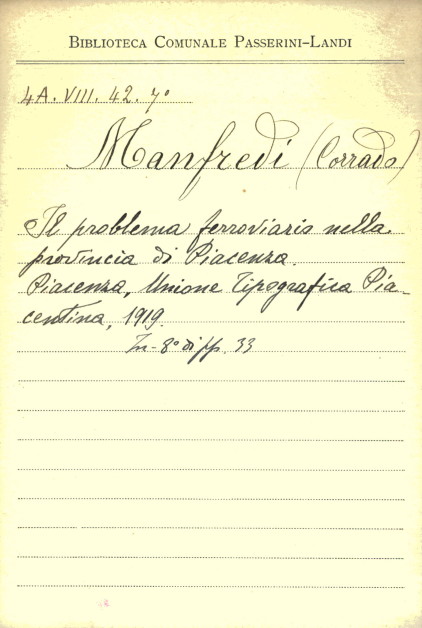 BIBLIOTECA COMUNALE PASSERINI-LANDI
4A. VIII. 42. 7º
Manfredi (Corrado)
Il problema ferroviario nella
provincia di Piacenza.
Piacenza, Unione Tipografica Pia-
centina, 1919.
In-8º di pp. 33